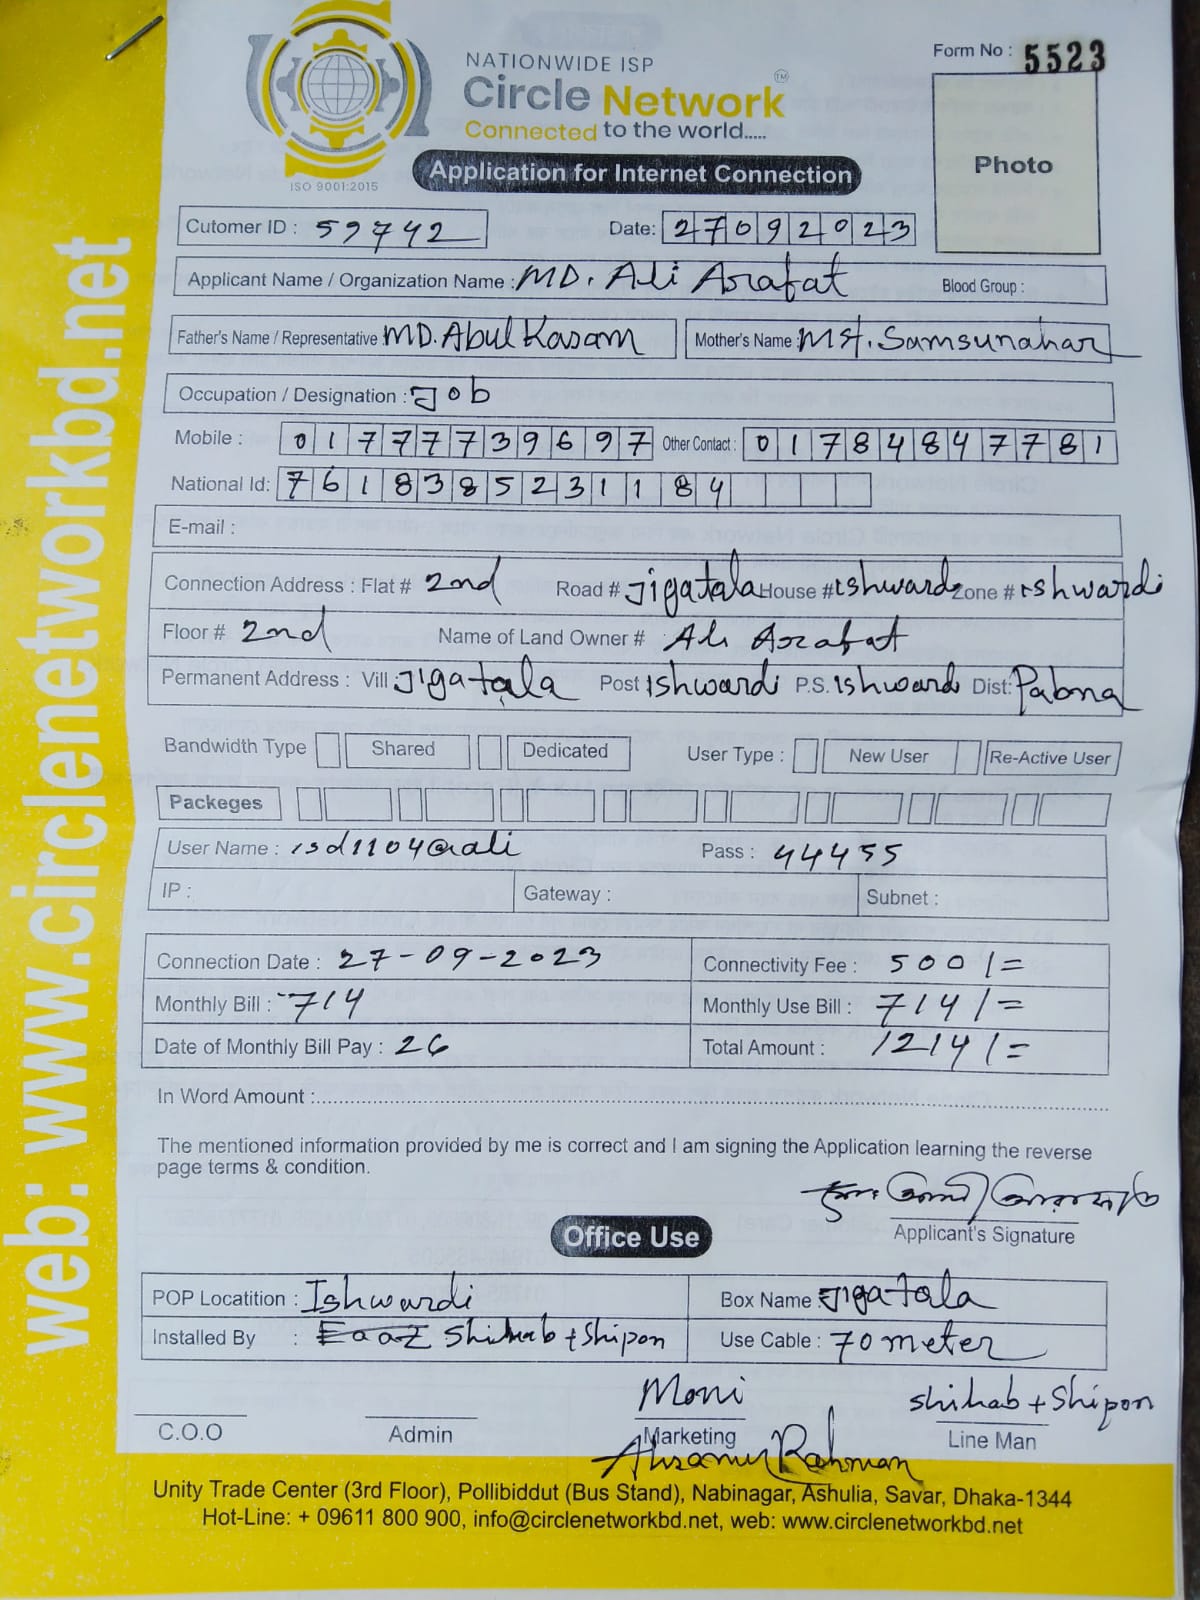 NATIONWIDE ISP
Circle Network TM
Connected to the world.....
ISO 9001:2015
Form No : 5523
Photo
Application for Internet Connection
Cutomer ID : 59742 Date: 27092023
Applicant Name / Organization Name : MD. Ali Arafat Blood Group :
Father's Name / Representative : MD. Abul Kasam Mother's Name : Mst. Samsunahar
Occupation / Designation : Job
Mobile : 01777739697 Other Contact : 01784847781
National Id: 76183852311184
E-mail :
Connection Address : Flat # 2nd Road # Jigatala House # Ishwardi Zone # Ishwardi
Floor # 2nd Name of Land Owner # Ali Arafat
Permanent Address : Vill Jigatala Post Ishwardi P.S. Ishwardi Dist: Pabna
Bandwidth Type Shared Dedicated User Type : New User Re-Active User
Packeges
User Name : isd1104@ali Pass : 44455
IP : Gateway : Subnet :
Connection Date : 27-09-2023 Connectivity Fee : 500/=
Monthly Bill : 714 Monthly Use Bill : 714/=
Date of Monthly Bill Pay : 26 Total Amount : 1214/=
In Word Amount :
The mentioned information provided by me is correct and I am signing the Application learning the reverse
page terms & condition.
মোঃ আলী আরাফাত
Applicant's Signature
Office Use
POP Locatition : Ishwardi Box Name Jigatala
Installed By : Shihab + Shipon Use Cable : 70 meter
Moni Shihab + Shipon
C.O.O Admin Marketing Line Man
Ahsanur Rahman
Unity Trade Center (3rd Floor), Pollibiddut (Bus Stand), Nabinagar, Ashulia, Savar, Dhaka-1344
Hot-Line: + 09611 800 900, info@circlenetworkbd.net, web: www.circlenetworkbd.net
web: www.circlenetworkbd.net